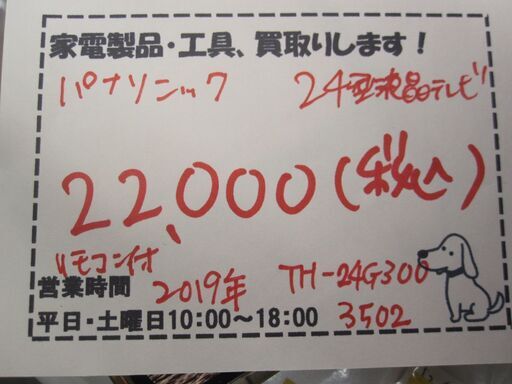 家電製品・工具、買取りします！
パナソニック 24型液晶テレビ
22,000(税込)
リモコン付
2019年 TH-24G300
営業時間
平日・土曜日10:00～18:00 3502